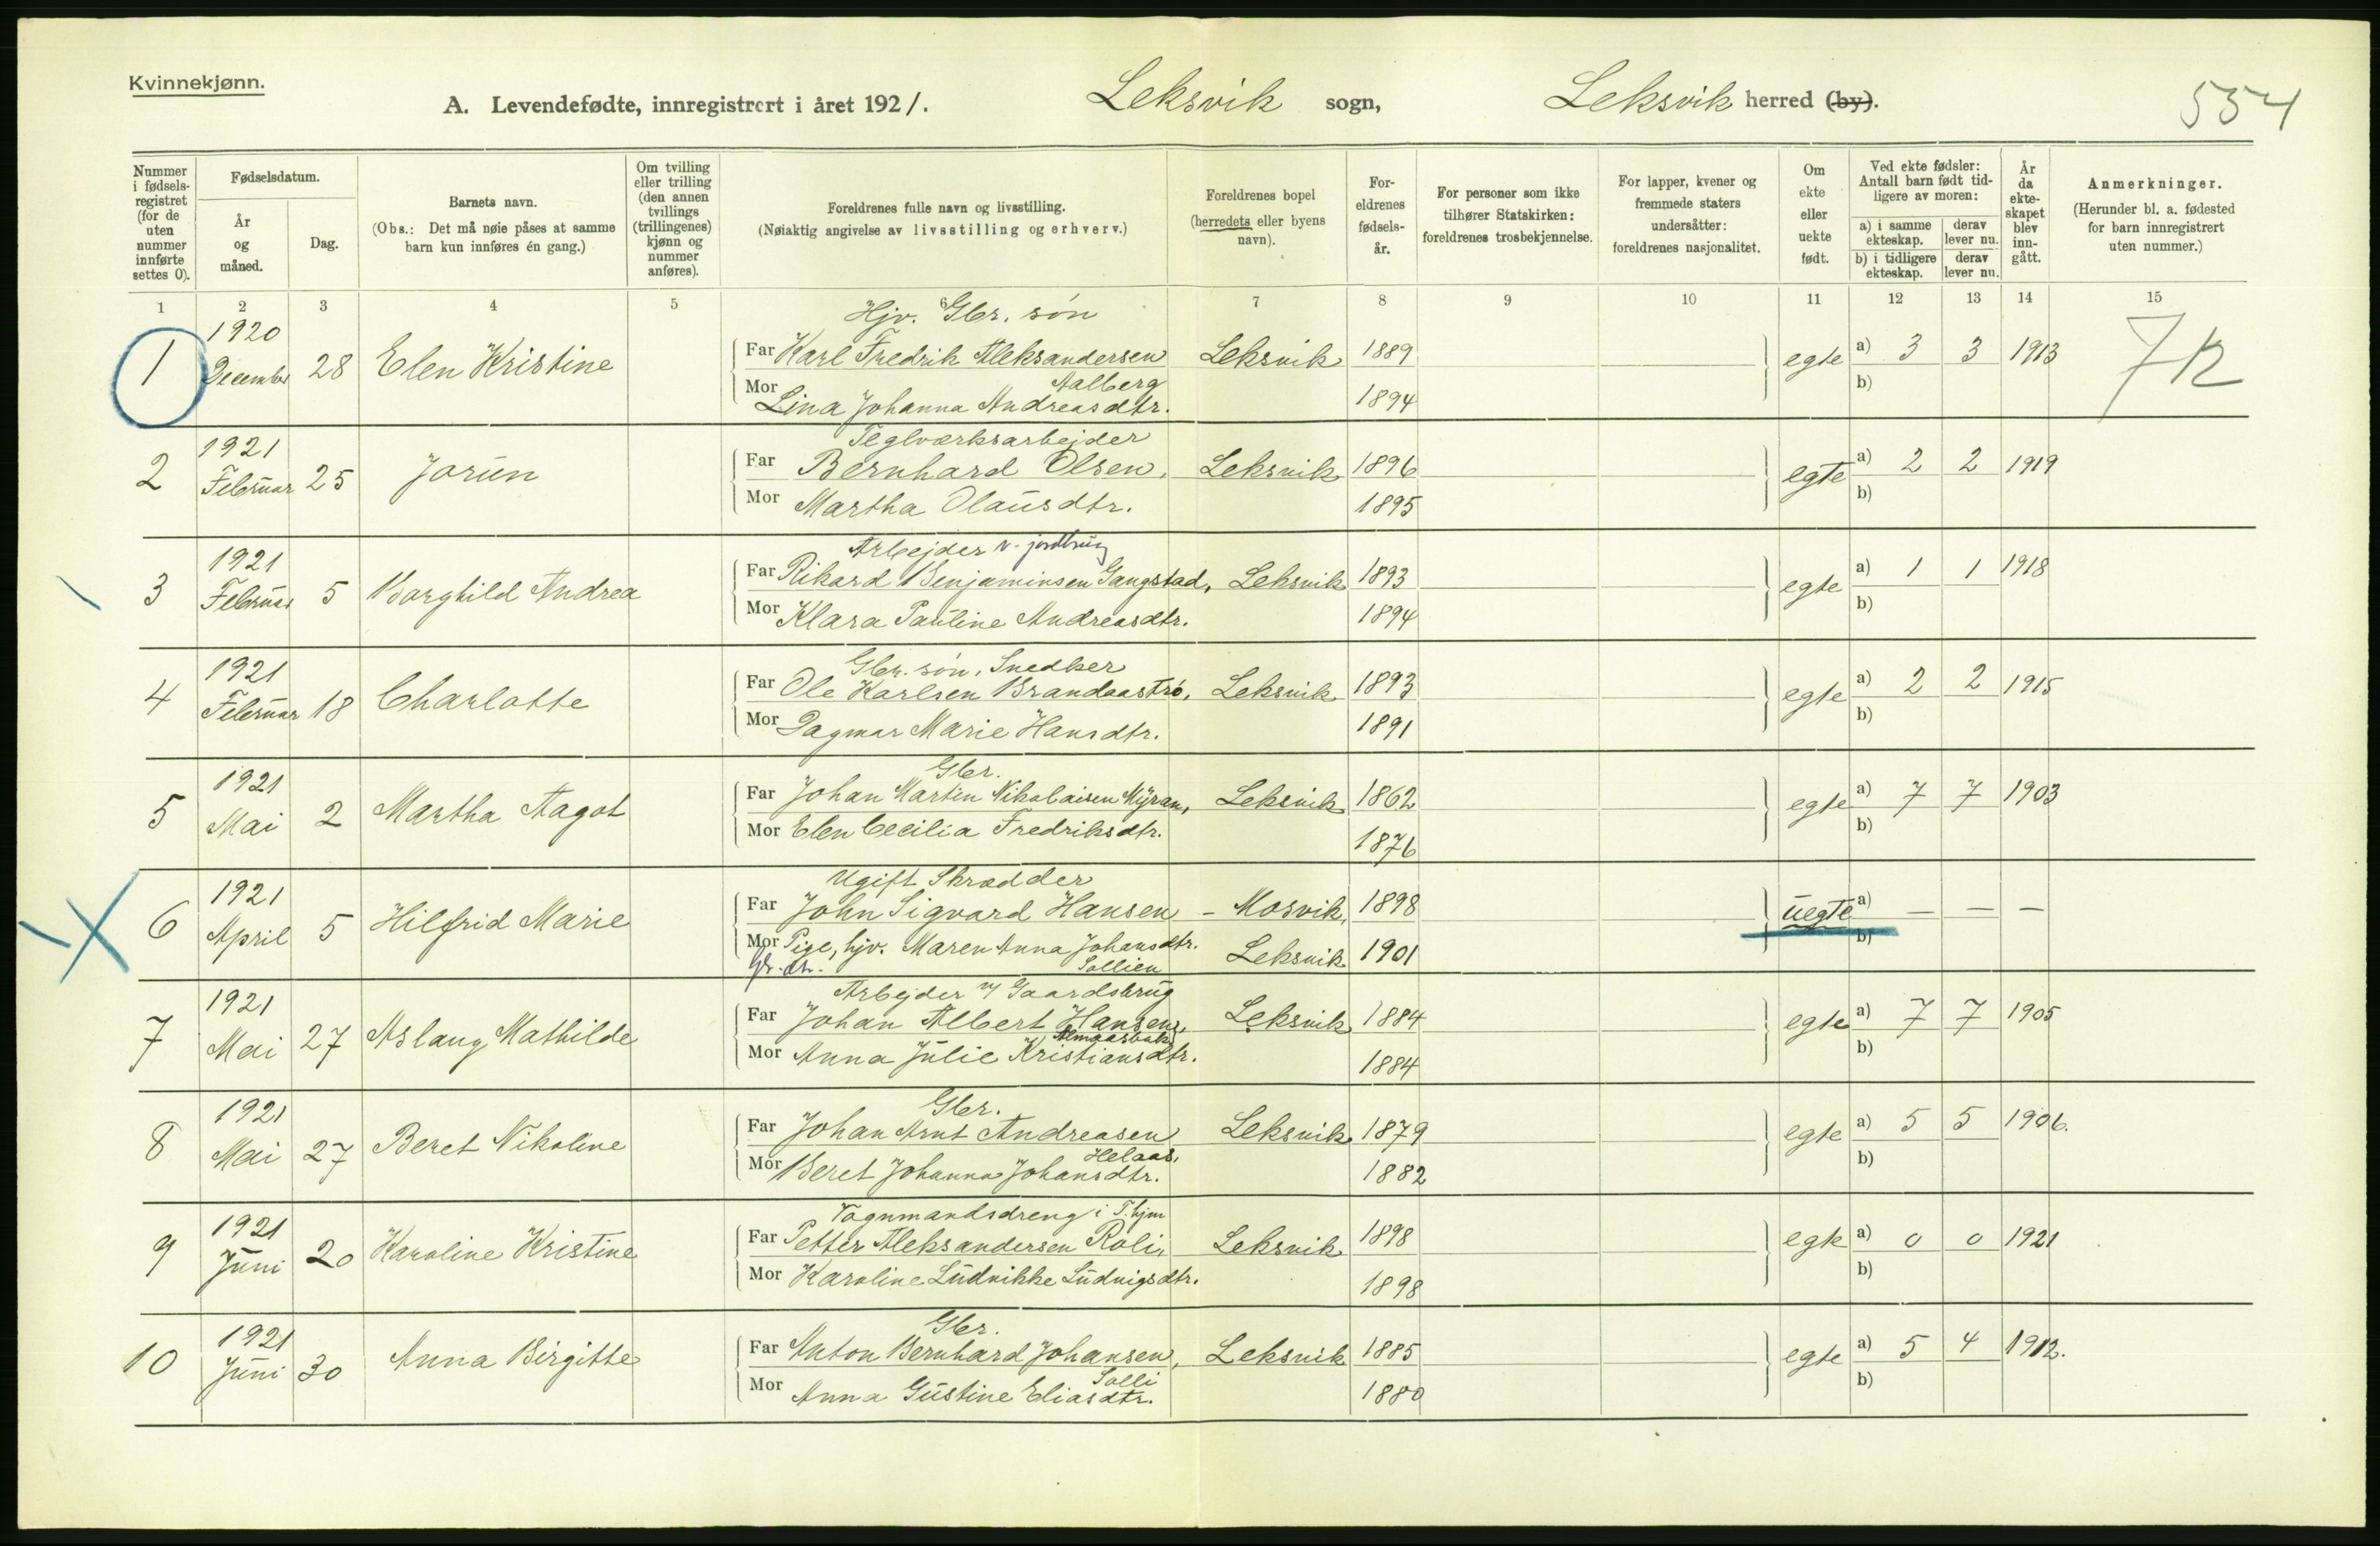 Kvinnekjønn.
A. Levendefødte, innregistrert i året 1921. Leksvik sogn, Leksvik herred (by). 554
Nummer i fødsels-registret (for de uten nummer innførte settes 0).
Fødselsdatum.
År og måned.
Dag.
Barnets navn.
(Obs.: Det må nøie påses at samme barn kun innføres én gang.)
Om tvilling eller trilling (den annen tvillings (trillingenes) kjønn og nummer anføres).
Foreldrenes fulle navn og livsstilling.
(Nøiaktig angivelse av livsstilling og erhverv.)
Foreldrenes bopel (herredets eller byens navn).
For-eldrenes fødsels-år.
For personer som ikke tilhører Statskirken: foreldrenes trosbekjennelse.
For lapper, kvener og fremmede staters undersåtter: foreldrenes nasjonalitet.
Om ekte eller uekte født.
Ved ekte fødsler: Antall barn født tid-ligere av moren:
a) i samme ekteskap. derav lever nu.
b) i tidligere ekteskap. derav lever nu.
År da ekte-skapet blev inn-gått.
Anmerkninger.
(Herunder bl. a. fødested for barn innregistrert uten nummer.)
1 2 3 4 5 6 7 8 9 10 11 12 13 14 15
1920 Hjv. Gbr. søn
1 December 28 Elen Kristine Far Karl Fredrik Aleksandersen Leksvik 1889 egte a) 3 3 1913 7k
Aalberg
Mor Lina Johanna Andreasdtr. 1894 b)
1921 Teglværksarbejder
2 Februar 25 Jorun Far Bernhard Olsen, Leksvik 1896 egte a) 2 2 1919
Mor Martha Olausdtr. 1895 b)
1921 Arbejder v. jordbrug
3 Februar 5 Borghild Andrea Far Rikard Benjaminsen Gangstad, Leksvik 1893 egte a) 1 1 1918
Mor Klara Pauline Andreasdtr. 1894 b)
1921 Gbr. søn, Snedker
4 Februar 18 Charlotte Far Ole Karlsen Brandaastrø, Leksvik 1893 egte a) 2 2 1915
Mor Dagmar Marie Hansdtr. 1891 b)
1921 Gbr.
5 Mai 2 Martha Aagot Far Johan Martin Nikolaisen Myran, Leksvik 1862 egte a) 7 7 1903
Mor Elen Cecilia Fredriksdtr. 1876 b)
1921 Ugift Skrædder
6 April 5 Hilfrid Marie Far John Sigvard Hansen - Mosvik, 1898 uegte a) — — —
Mor Pige, hjv. Maren Anna Johansdtr. Leksvik 1901 b)
Gb. dtr. Sollien
1921 Arbejder v/ Gaardsbrug
7 Mai 27 Aslaug Mathilde Far Johan Albert Hansen, Leksvik 1884 egte a) 7 7 1905
Mor Anna Julie Kristiansdtr. 1884 b)
1921 Gbr.
8 Mai 27 Beret Nikoline Far Johan Arnt Andreasen Leksvik 1879 egte a) 5 5 1906.
Helaas,
Mor Beret Johanna Johansdtr. 1882 b)
1921 Vognmandsdreng i T.hjm
9 Juni 20 Karoline Kristine Far Petter Aleksandersen Roli, Leksvik 1898 egte a) 0 0 1921
Mor Karoline Ludvikke Ludvigsdtr. 1898 b)
1921 Gbr.
10 Juni 30 Anna Birgitte Far Anton Bernhard Johansen, Leksvik 1885 egte a) 5 4 1912.
Solli
Mor Anna Gustine Eliasdtr. 1880 b)